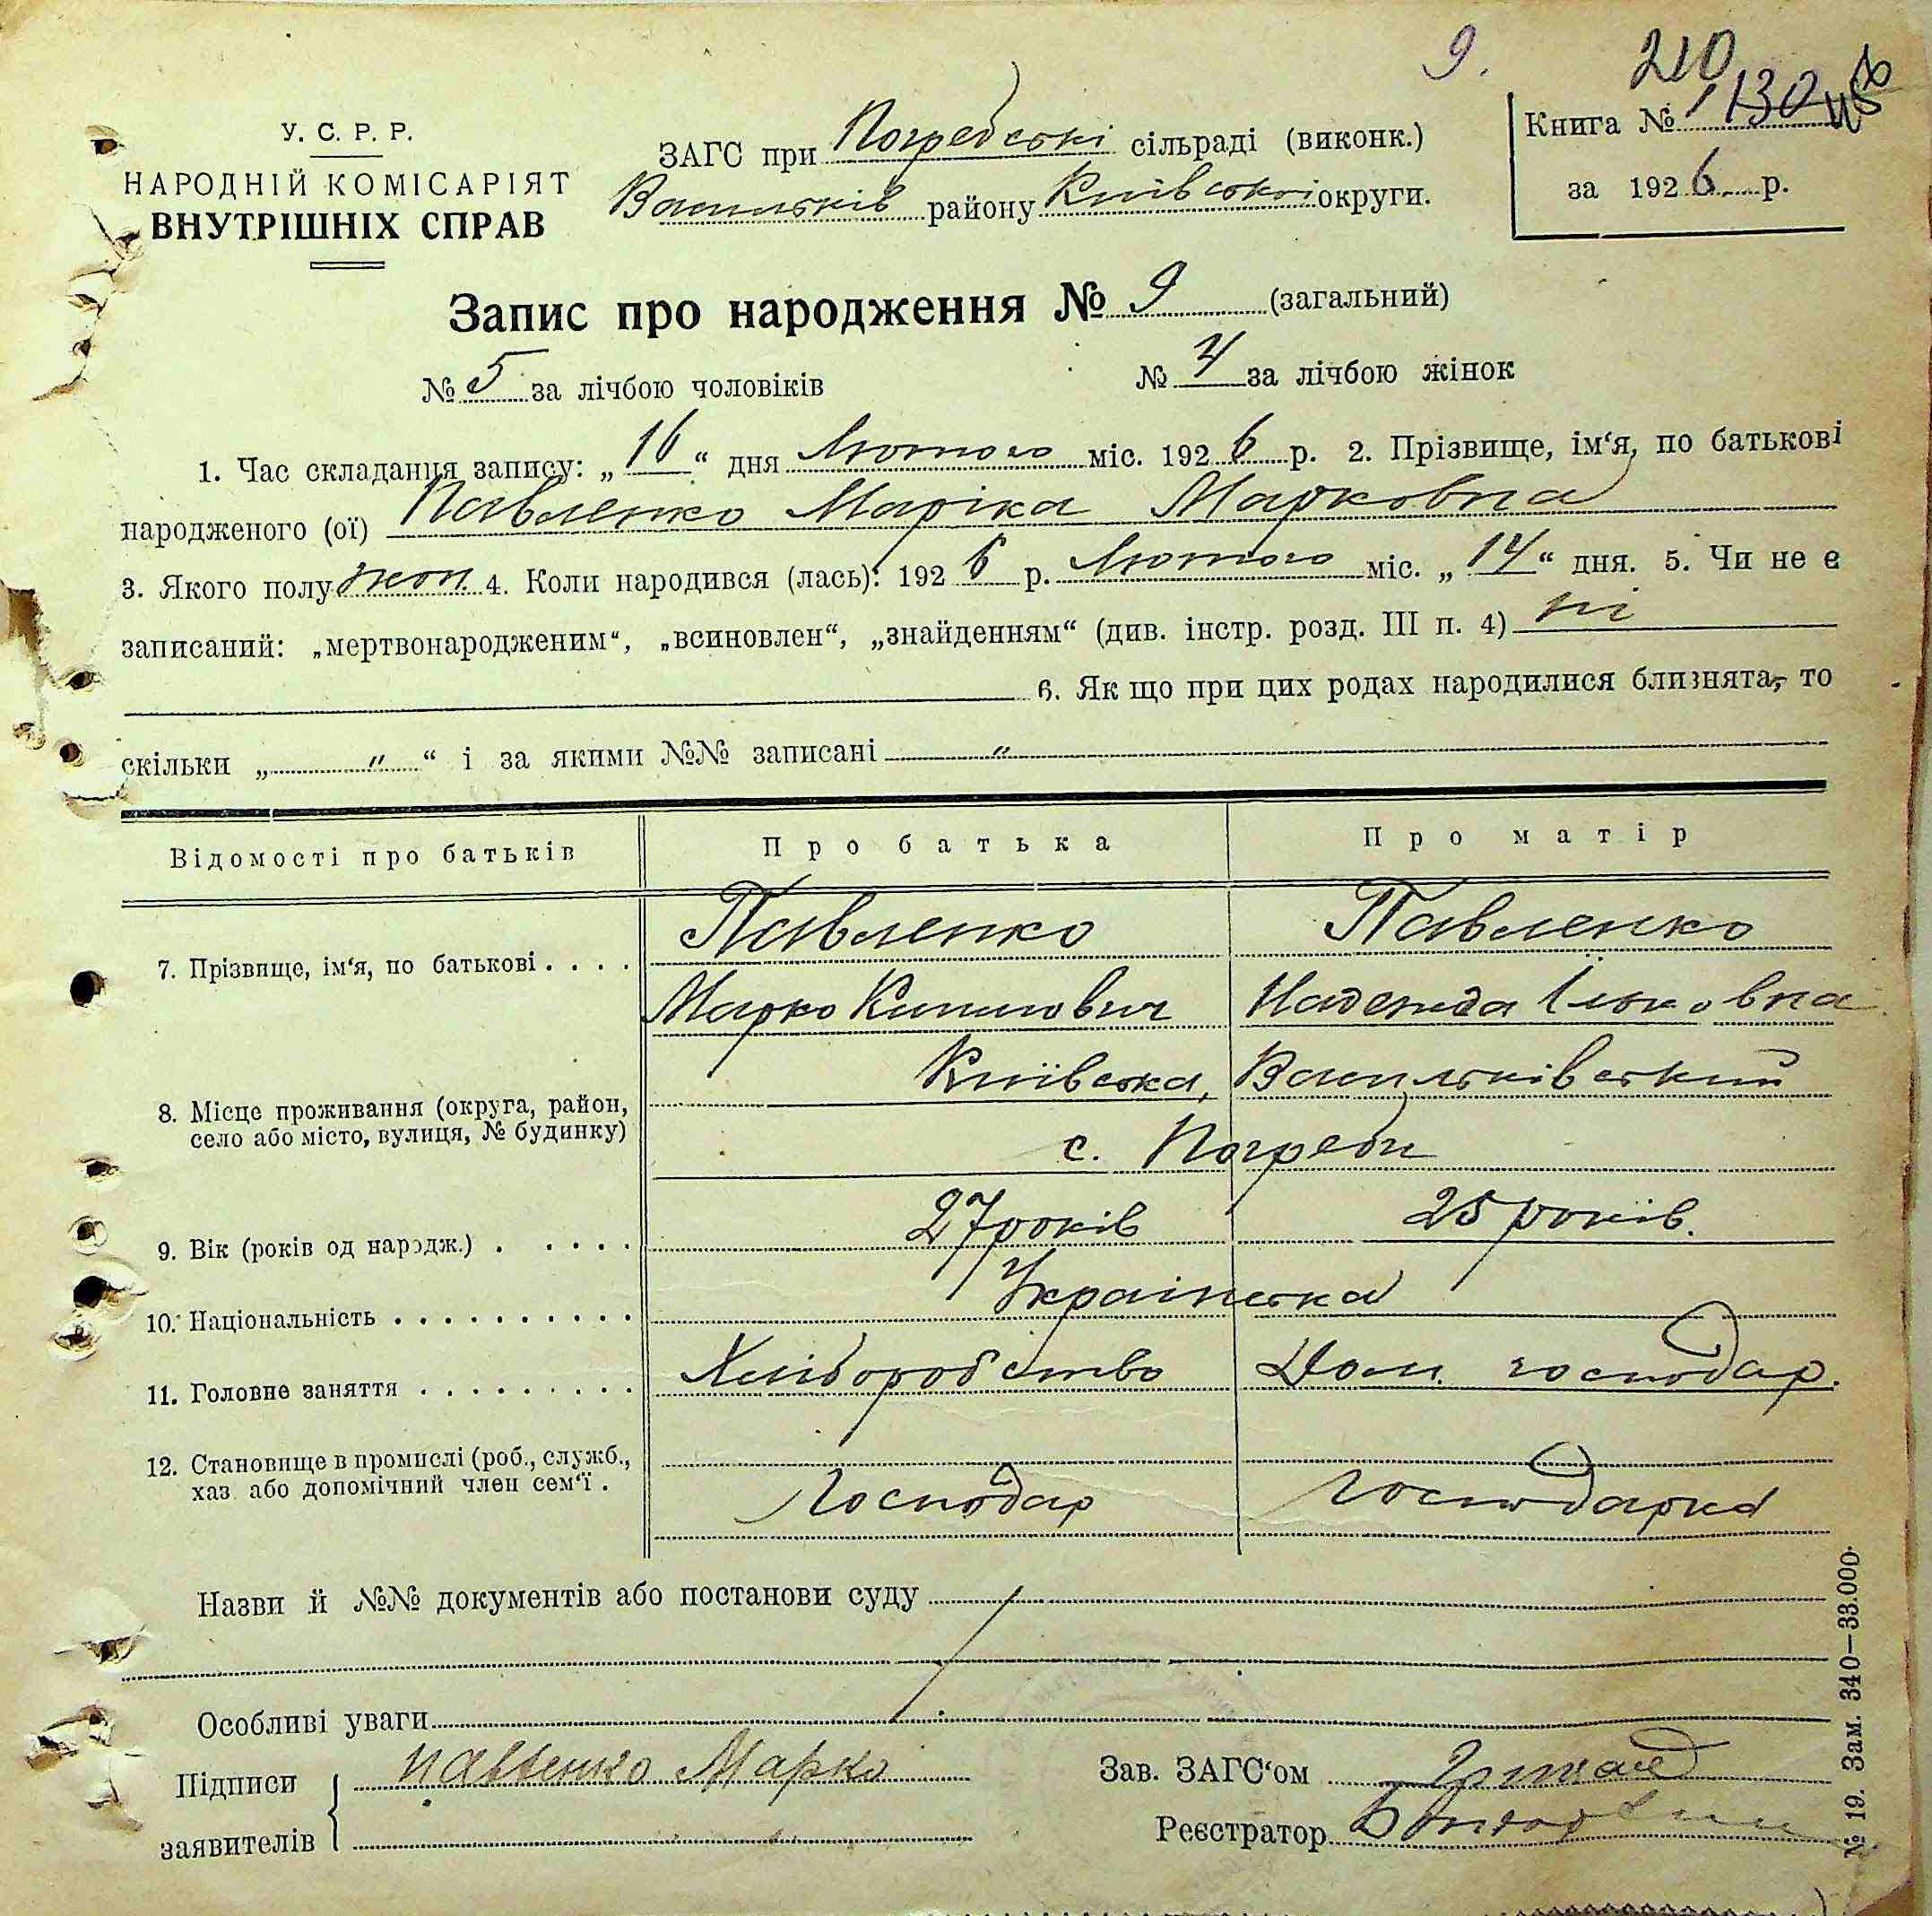 9.
210
У. С. Р. Р.
НАРОДНІЙ КОМІСАРІЯТ
ВНУТРІШНІХ СПРАВ
ЗАГС при Погребські сільраді (виконк.)
Васильків району Київської округи.
Книга № 130
за 1926 р.
Запис про народження № 9 (загальний)
№ 5 за лічбою чоловіків № 4 за лічбою жінок
1. Час складання запису: „16“ дня Лютого міс. 1926 р. 2. Прізвище, ім‘я, по батькові
народженого (ої) Павленко Маріка Марковна
3. Якого полу жон. 4. Коли народився (лась): 1926 р. Лютого міс. „14“ дня. 5. Чи не є
записаний: „мертвонародженим“, „всиновлен“, „знайденням“ (див. інстр. розд. III п. 4) ні
6. Як що при цих родах народилися близнята, то
скільки „ " “ і за якими №№ записані "
Відомості про батьків Про батька Про матір
7. Прізвище, ім‘я, по батькові . . . . Павленко Павленко
Марко Надежда Ільковна
8. Місце проживання (округа, район, село або місто, вулиця, № будинку) Київська, Васильківський
с. Погреби
9. Вік (років од народж.) . . . . . 27 років 25 років.
10. Національність . . . . . . . . . . Українська
11. Головне заняття . . . . . . . . . Хліборобство Дом. господар.
12. Становище в промислі (роб., служб.,
хаз. або допомічний член сем‘ї . Господар Господарка
Назви й №№ документів або постанови суду
Особливі уваги
Підписи Павленко Марко Зав. ЗАГС‘ом
заявителів Реєстратор
№ 19. Зам. 340—33.000.